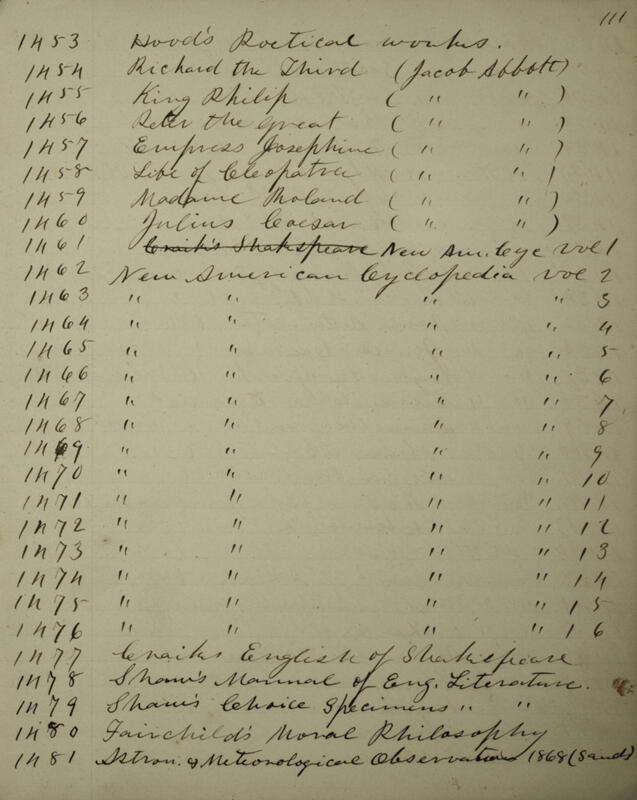 111
1453 Hood's Poetical works.
1454 Richard the Third (Jacob Abbott)
1455 King Philip ( " " )
1456 Peter the Great ( " " )
1457 Empress Josephine ( " " )
1458 Life of Cleopatra ( " " )
1459 Madame Roland ( " " )
1460 Julius Caesar ( " " )
1461 Craik's Shakspeare New Am. Cyc vol 1
1462 New American Cyclopedia vol 2
1463 " " " " 3
1464 " " " " 4
1465 " " " " 5
1466 " " " " 6
1467 " " " " 7
1468 " " " " 8
1469 " " " " 9
1470 " " " " 10
1471 " " " " 11
1472 " " " " 12
1473 " " " " 13
1474 " " " " 14
1475 " " " " 15
1476 " " " " 16
1477 Craiks English of Shakespeare
1478 Shaw's Manual of Eng. Literature.
1479 Shaw's Choice Specimens " "
1480 Fairchild's Moral Philosophy
1481 Astron. & Meteorological Observations 1868 (Sands)